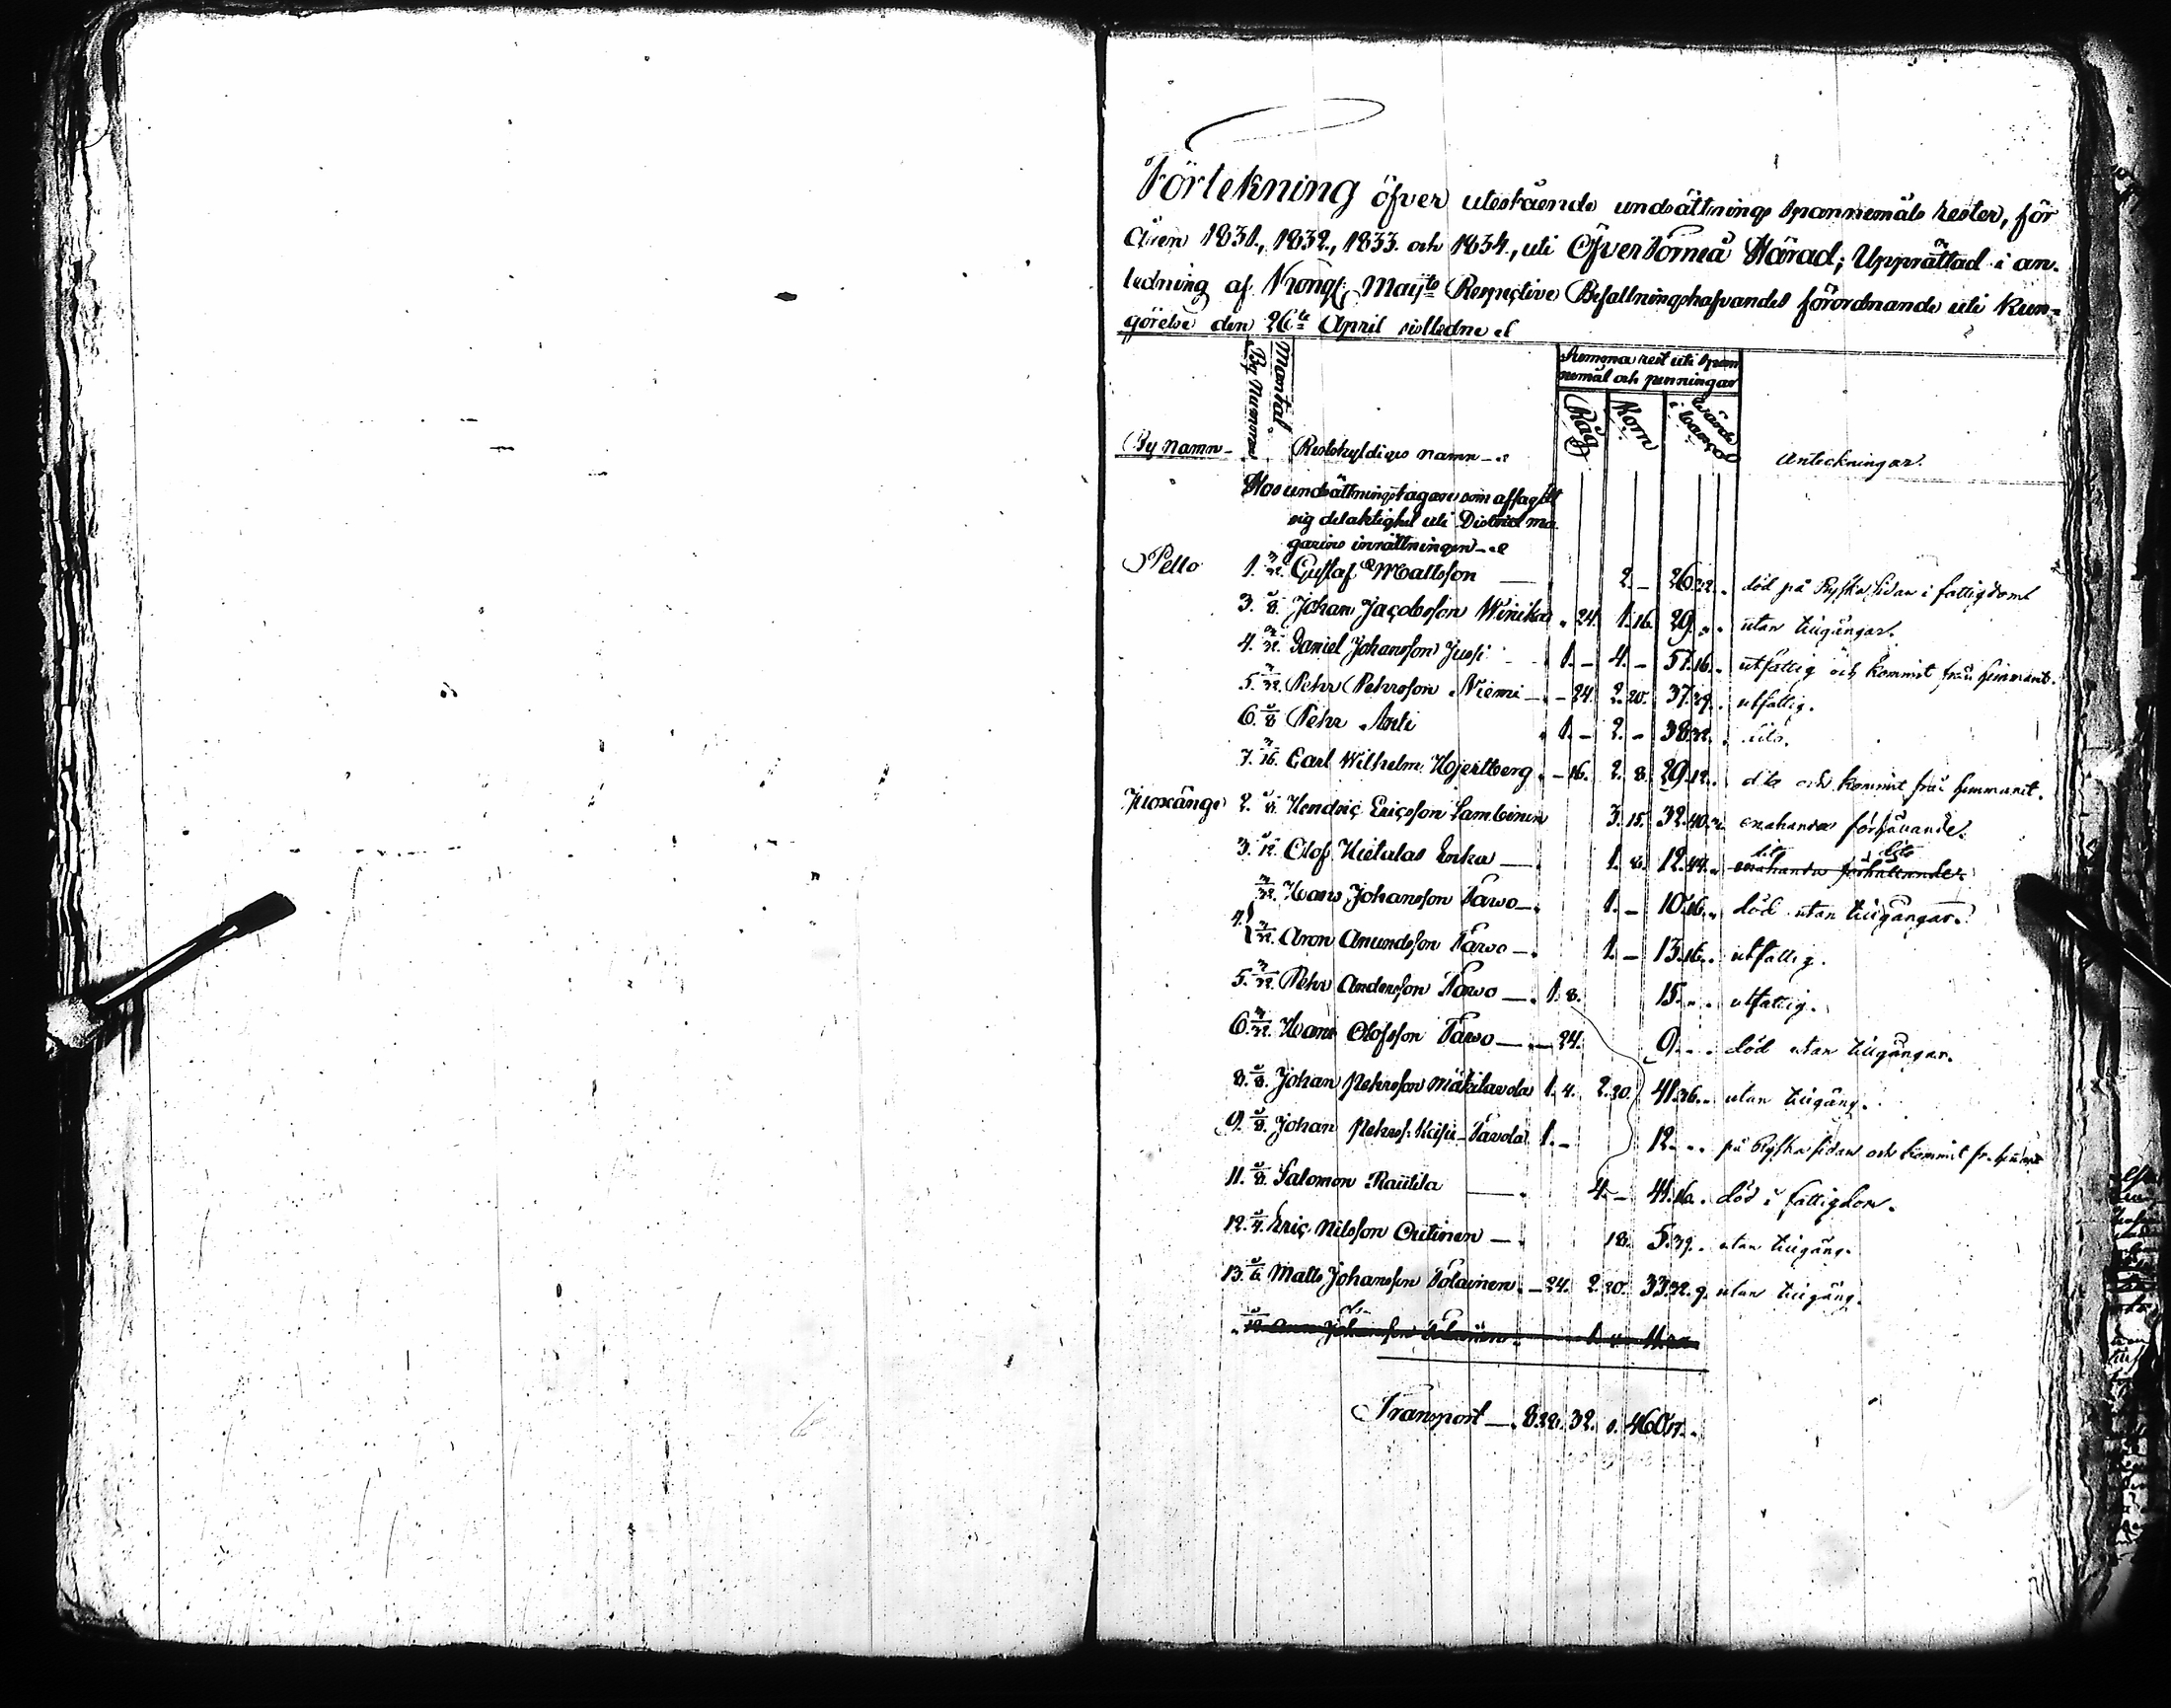 Förtekning öfver utestående undsättnings Spannemåls rester, för
åren 1831., 1832., 1833. och 1834., uti ÖfverTorneå Härad; Upprättad i an-
ledning af Kongl; Maij:ts Respective Befallningshafvandes förordnande uti Kun-
görelse den 26:te April sistledne
By namn By Nummer Mantal Restskyldiges namn Summa rest uti Span nemål och penningar Råg Korn i banco Anteckningar.
Hos undsättningstagare som afsagdt
sig delaktighet uti District ma
gazins inrättningen
Pello 1. Gustaf Mattsson 2. – 26.32. död på Ryska sidan i fattigdom
3. Johan Jacobsson Winika 24. 1.16. 29. utan tillgångar.
4. Daniel Johansson Jussi 1. – 4. – 57.16. utfattig och kommit från hemmanet.
5. Pehr Pehrsson Niemi – 24. 2.20. 37. utfattig.
6. Pehr Anti 1. – 2. – 38.32. dito.
7. Carl Wilhelm Hjertberg – 16. 2. 8. 29.12. dito och kommit från hemmanet.
Juoxänge 2. Hendric Ericsson Lambinen 3.15. 32.40. enahanda förhållande.
3. Olof Hietalas Enka 1. 8. 12.44. dito dito
Hans Johansson Tawo 1. – 10.16. död utan tillgångar.
4. Aron Anundsson Tawo 1. – 13.16. utfattig.
5. Pehr Andersson Tawo 1. 8. 15. utfattig.
6. Hans Olofsson Tawo – 24. 9. död utan tillgångar.
8. Johan Pehrsson Mäkitavola 1. 4. 2.20. 41.36. utan tillgång.
9. Johan Pehrss. Keisu-Tavola 1. – 12. på Ryska sidan och kommit fr. hemmanet
11. Salomon Rautila 4. – 44.16. död i fattigdom.
12. Eric Nilsson Outinen 18. 5.39. utan tillgång.
13. Matts Johansson Tolainen – 24. 2.20. 33.32. 9. utan tillgång.
Transport 8.28. 32. 460.17.